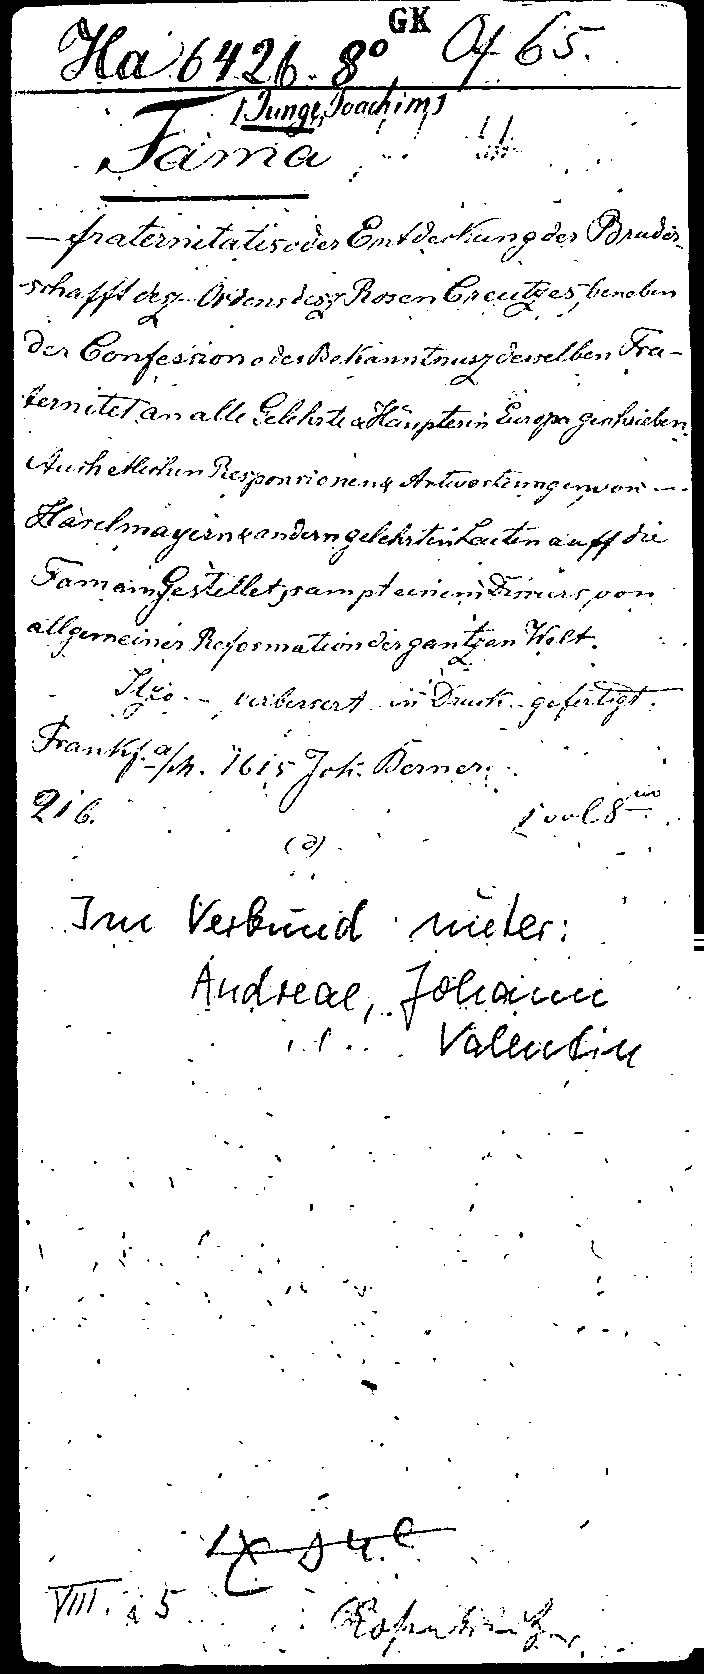 Ha 6426. 8° GK Of 65.
[Junge, Joachim]
Fama
— fraternitatis oder Entdeckung der Bruder-
schafft desz Ordens desz Rosen Creutzes, beneben
der Confession oder Bekanntnusz derselben Fra-
ternitet an alle Gelehrte & Häupter in Europa geschrieben.
Auch etlichen Responsionen & Antwortungen von —
Haselmayern & andern gelehrten Leuten auff die
Famam Gestellet, sampt einem Discurs von
allgemeiner Reformation der gantzen Welt.
Itzo — verbessert in Druck gefertigt.
Frankf. a/M. 1615 Joh. Berner.
216. 1 vol 8
(a)
Im Verbund unter:
Andreae, Johann
Valentin
VIII. 5